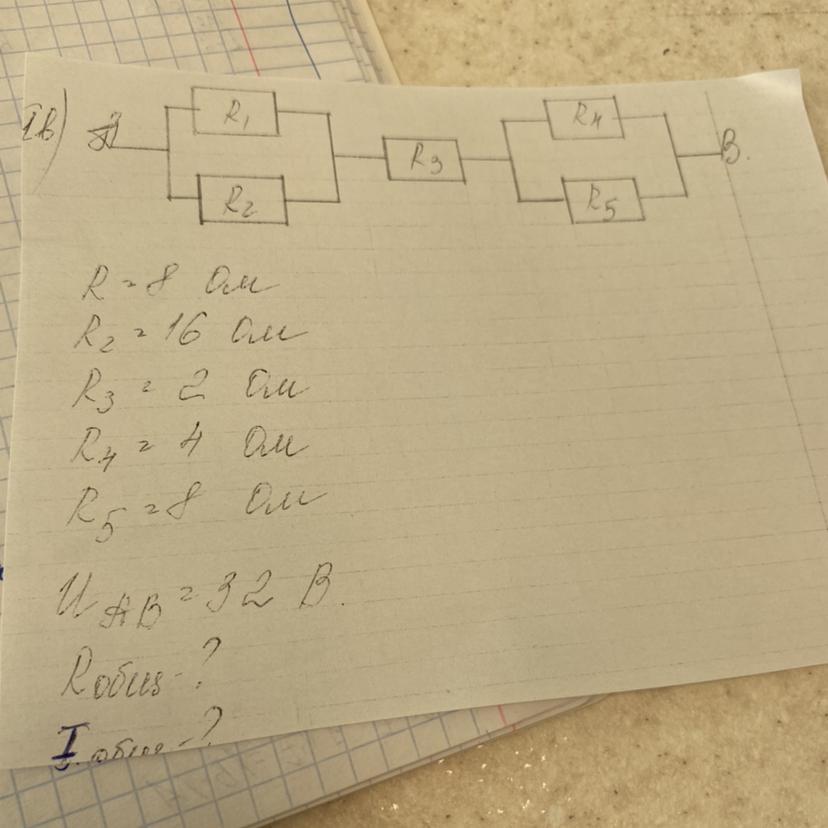 Iв)
A
R1
R2
R3
R4
R5
B.
R = 8 Ом
R2 = 16 Ом
R3 = 2 Ом
R4 = 4 Ом
R5 = 8 Ом
UAB = 32 В.
Rобщ - ?
Iобщ - ?